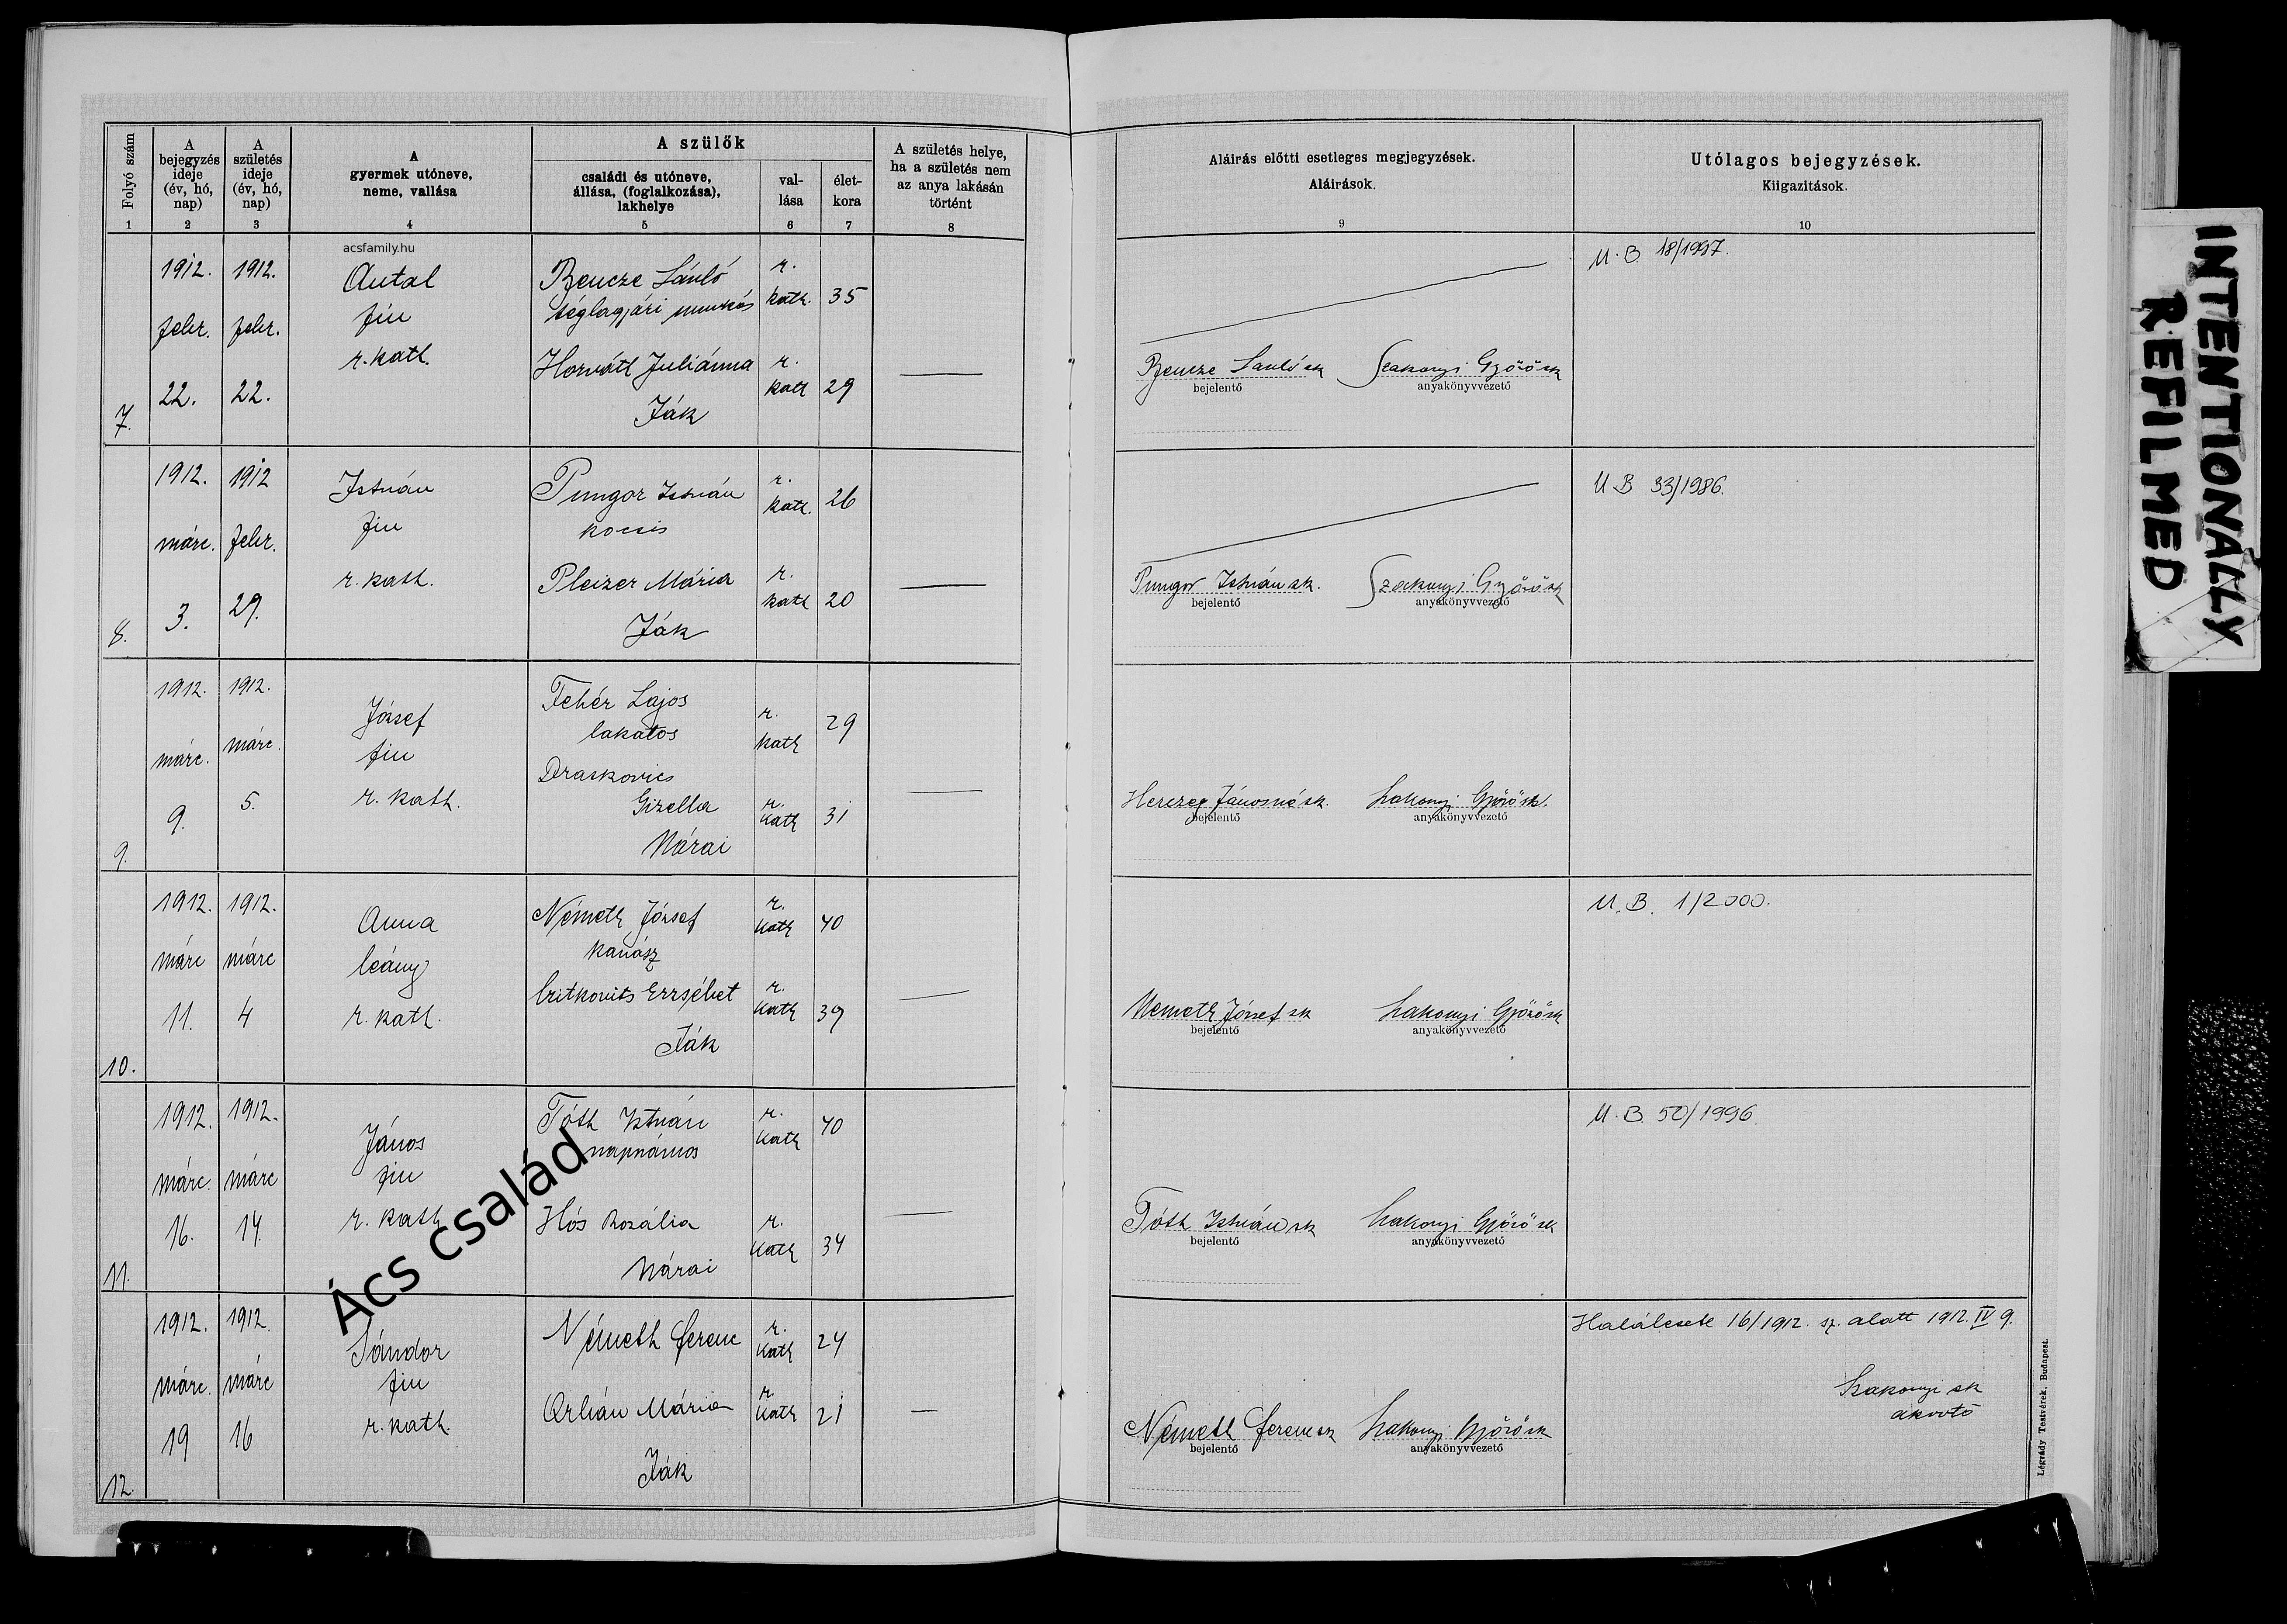 Folyó szám
A bejegyzés ideje (év, hó, nap)
A születés ideje (év, hó, nap)
A gyermek utóneve, neme, vallása
A szülők
családi és utóneve, állása, (foglalkozása), lakhelye
val-lása
élet-kora
A születés helye, ha a születés nem az anya lakásán történt
Aláírás előtti esetleges megjegyzések.
Aláírások.
Utólagos bejegyzések.
Kiigazitások.
1 2 3 4 5 6 7 8 9 10
acsfamily.hu
7.
1912. febr. 22.
1912. febr. 22.
Antal
fiu
r. kath.
Bencze László
téglagyári munkás
r. kath. 35
Horváth Juliánna
r. kath 29
Ják
Bencze László sk
bejelentő
Szakonyi Győző sk
anyakönyvvezető
U. B 18/1997.
8.
1912. márc. 3.
1912 febr. 29.
István
fiu
r. kath.
Pungor István
kocsis
r. kath. 26
Pleizer Mária
r. kath 20
Ják
Pungor István sk.
bejelentő
Szakonyi Győző sk
anyakönyvvezető
U. B 33/1986.
9.
1912. márc. 9.
1912. márc. 5.
József
fiu
r. kath.
Fehér Lajos
lakatos
r. kath 29
Draskovics
Gizella
r. kath 31
Nárai
Herczeg Jánosné sk.
bejelentő
Szakonyi Győző sk.
anyakönyvvezető
10.
1912. márc 11.
1912. márc 4
Anna
leány
r. kath.
Németh József
kanász
r. kath 40
Erzsébet
r. kath 39
Ják
Németh József sk
bejelentő
Szakonyi Győző sk
anyakönyvvezető
U. B. 1/2000.
11.
1912. márc. 16.
1912. márc 14.
János
fiu
r. kath
Tóth István
napszámos
r. kath 40
Hós Rozália
r. kath 34
Nárai
Tóth István sk
bejelentő
Szakonyi Győző sk
anyakönyvvezető
U. B. 50/1996.
Ács család
12.
1912. márc. 19
1912. márc 16
Sándor
fiu
r. kath.
Németh Ferenc
r. kath 24
Orbán Mária
r. kath 21
Ják
Németh Ferenc sk
bejelentő
Szakonyi Győző sk
anyakönyvvezető
Halálesete 16/1912. sz. alatt 1912. IV 9.
Szakonyi sk
akvvető
Légrády Testvérek, Budapest.
INTENTIONALLY
REFILMED